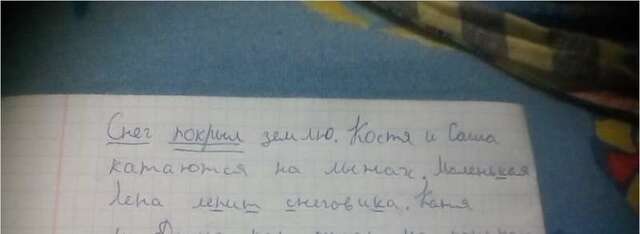 Снег покрыл землю. Костя и Саша
катаются на лыжах. Маленькая
Лена лепит снеговика. Катя